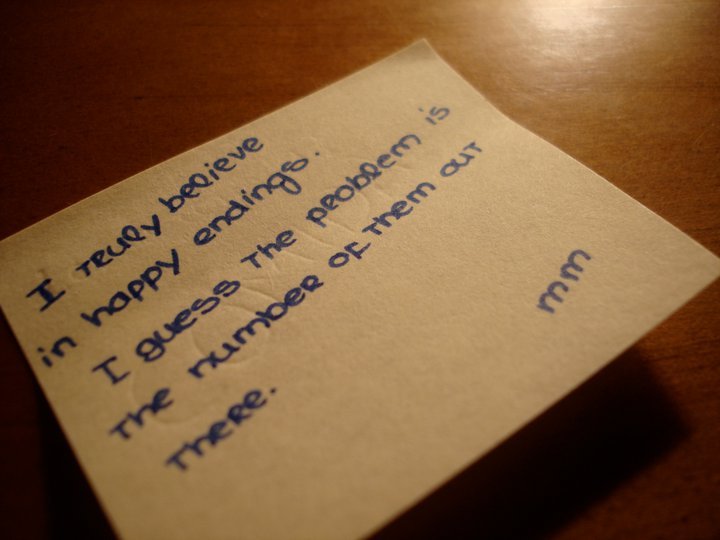 I truly believe
in happy endings.
I guess the problem is
the number of them out
there.
mm